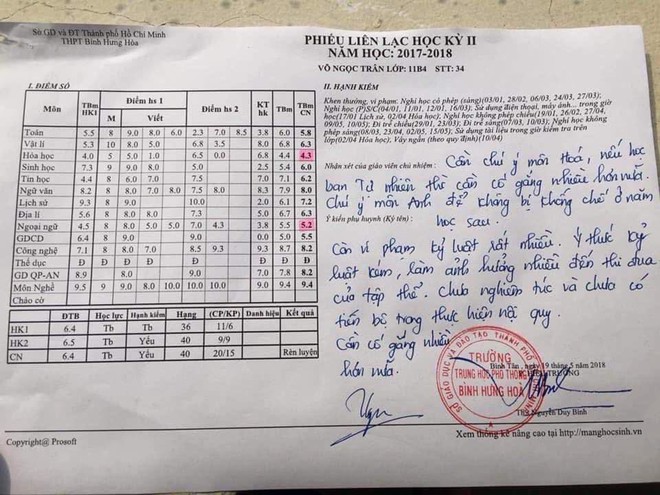 Sở GD và ĐT Thành phố Hồ Chí Minh
THPT Bình Hưng Hòa
PHIẾU LIÊN LẠC HỌC KỲ II
NĂM HỌC: 2017-2018
VÕ NGỌC TRÂN LỚP: 11B4 STT: 34
I. ĐIỂM SỐ
Môn TBm HK1 Điểm hs 1 M Viết Điểm hs 2 KT hk TBm TBm CN
Toán 5.5 8 9.0 8.0 6.0 2.3 7.0 8.5 3.8 6.0 5.8
Vật lí 5.3 10 8.0 5.0 6.8 3.5 8.0 6.8 6.3
Hóa học 4.0 5 5.0 1.0 6.5 0.0 6.8 4.4 4.3
Sinh học 7.3 9 9.0 8.0 5.0 2.5 5.4 6.0
Tin học 4.4 8 7.0 7.5 7.0 7.1 6.2
Ngữ văn 8.2 8 8.0 7.0 8.0 7.5 8.0 8.3 7.9 8.0
Lịch sử 9.3 8 9.0 10.0 2.0 6.1 7.2
Địa lí 5.6 8 8.0 8.0 7.3 5.0 6.7 6.3
Ngoại ngữ 4.5 8 8.0 5.0 5.0 7.0 4.3 3.8 5.5 5.2
GDCD 6.4 9.0 9.0 0.0 5.0 5.5
Công nghệ 7.1 8 8.0 7.0 8.5 9.3 9.3 8.7 8.2
Thể dục Đ Đ Đ Đ Đ Đ Đ
GD QP-AN 8.9 8.0 9.0 7.0 7.8 8.2
Môn Nghề 9.5 9 9.0 8.0 10.0 10.0 10.0 9.0 9.4 9.4
Chào cờ
ĐTB Học lực Hạnh kiểm Hạng (CP/KP) Danh hiệu Kết quả
HK1 6.4 Tb Tb 36 11/6
HK2 6.5 Tb Yếu 40 9/9
CN 6.4 Tb Yếu 40 20/15 Rèn luyện
Copyright@ Prosoft
II. HẠNH KIỂM
Khen thưởng, vi phạm: Nghỉ học có phép (sáng)(03/01, 28/02, 06/03, 24/03, 27/03);
Nghỉ học (P)S/C(04/01, 11/01, 12/01, 16/03); Sử dụng điện thoại, máy ảnh... trong giờ
học(17/01 Lịch sử, 02/04 Hóa học); Nghỉ học không phép chiều(19/01, 26/02, 27/04,
09/05, 10/05); Đi trễ chiều(19/01, 23/03); Đi trễ sáng(07/03, 10/03); Nghỉ học không
phép sáng(08/03, 23/04, 02/05, 15/05); Sử dụng tài liệu trong giờ kiểm tra trên
lớp(02/04 Hóa học); Váy ngắn (theo quy định)(10/04)
Nhận xét của giáo viên chủ nhiệm: Cần chú ý môn Hoá, nếu học
ban Tự nhiên thì cần cố gắng nhiều hơn nữa.
Chú ý môn Anh để không bị khống chế ở năm
Ý kiến phụ huynh (Ký tên): học sau.
Còn vi phạm kỷ luật rất nhiều. Ý thức kỷ
luật kém, làm ảnh hưởng nhiều đến thi đua
của tập thể. Chưa nghiêm túc và chưa có
tiến bộ trong thực hiện nội quy.
Cần cố gắng nhiều
hơn nữa.
Bình Tân, ngày 19 tháng 5 năm 2018
HIỆU TRƯỞNG
SỞ GIÁO DỤC VÀ ĐÀO TẠO THÀNH PHỐ HỒ CHÍ MINH
TRƯỜNG
TRUNG HỌC PHỔ THÔNG
BÌNH HƯNG HOÀ
ThS Nguyễn Duy Bình
Xem thông kê nâng cao tại http://manghocsinh.vn